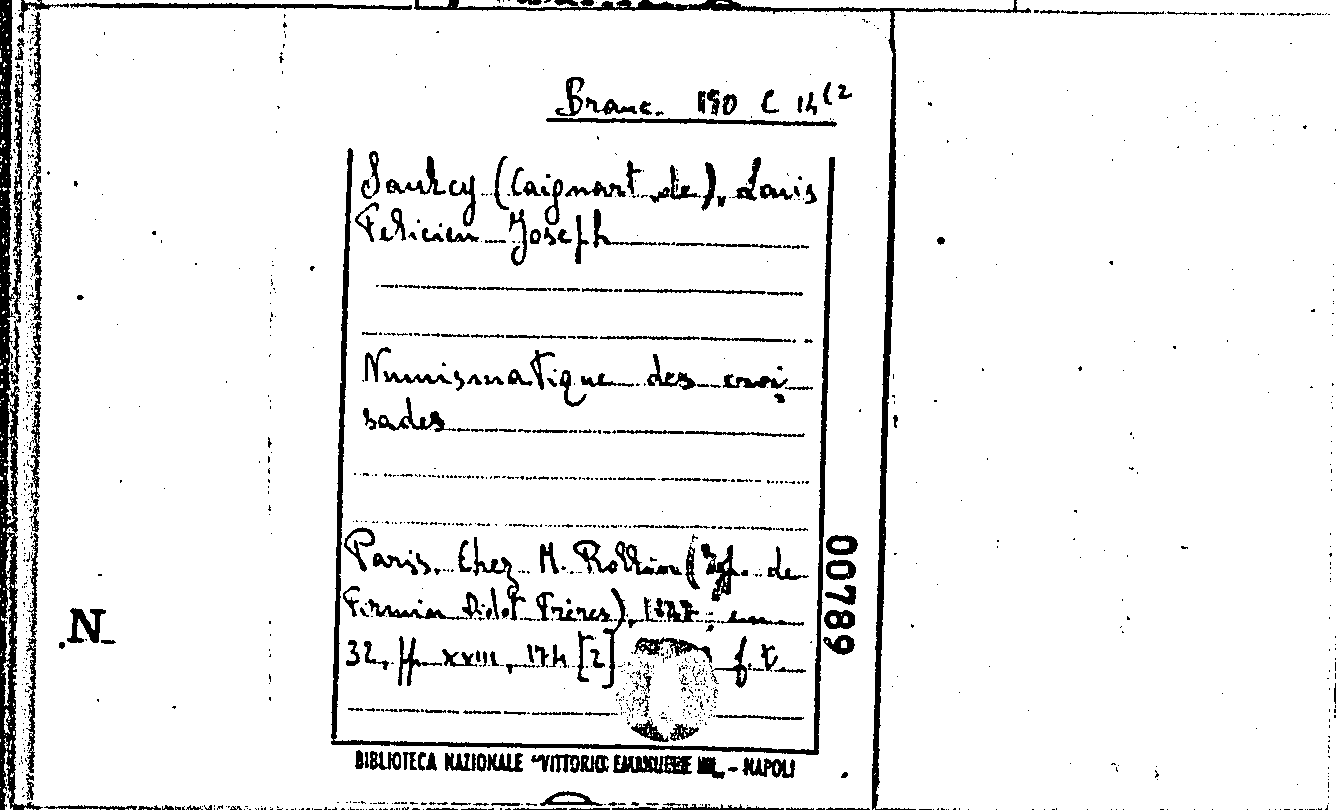 Branc. 150 C 14(2
Saulcy (Caignart de), Louis
Felicien Joseph
Numismatique des croi
sades
Paris, Chez M. Rollin (Typ. de
Firmin Didot Frères), 1847; cm.
32, pp. XXIII, 174 [2] f. t.
00789
N
BIBLIOTECA NAZIONALE "VITTORIO EMANUELE III„ - NAPOLI